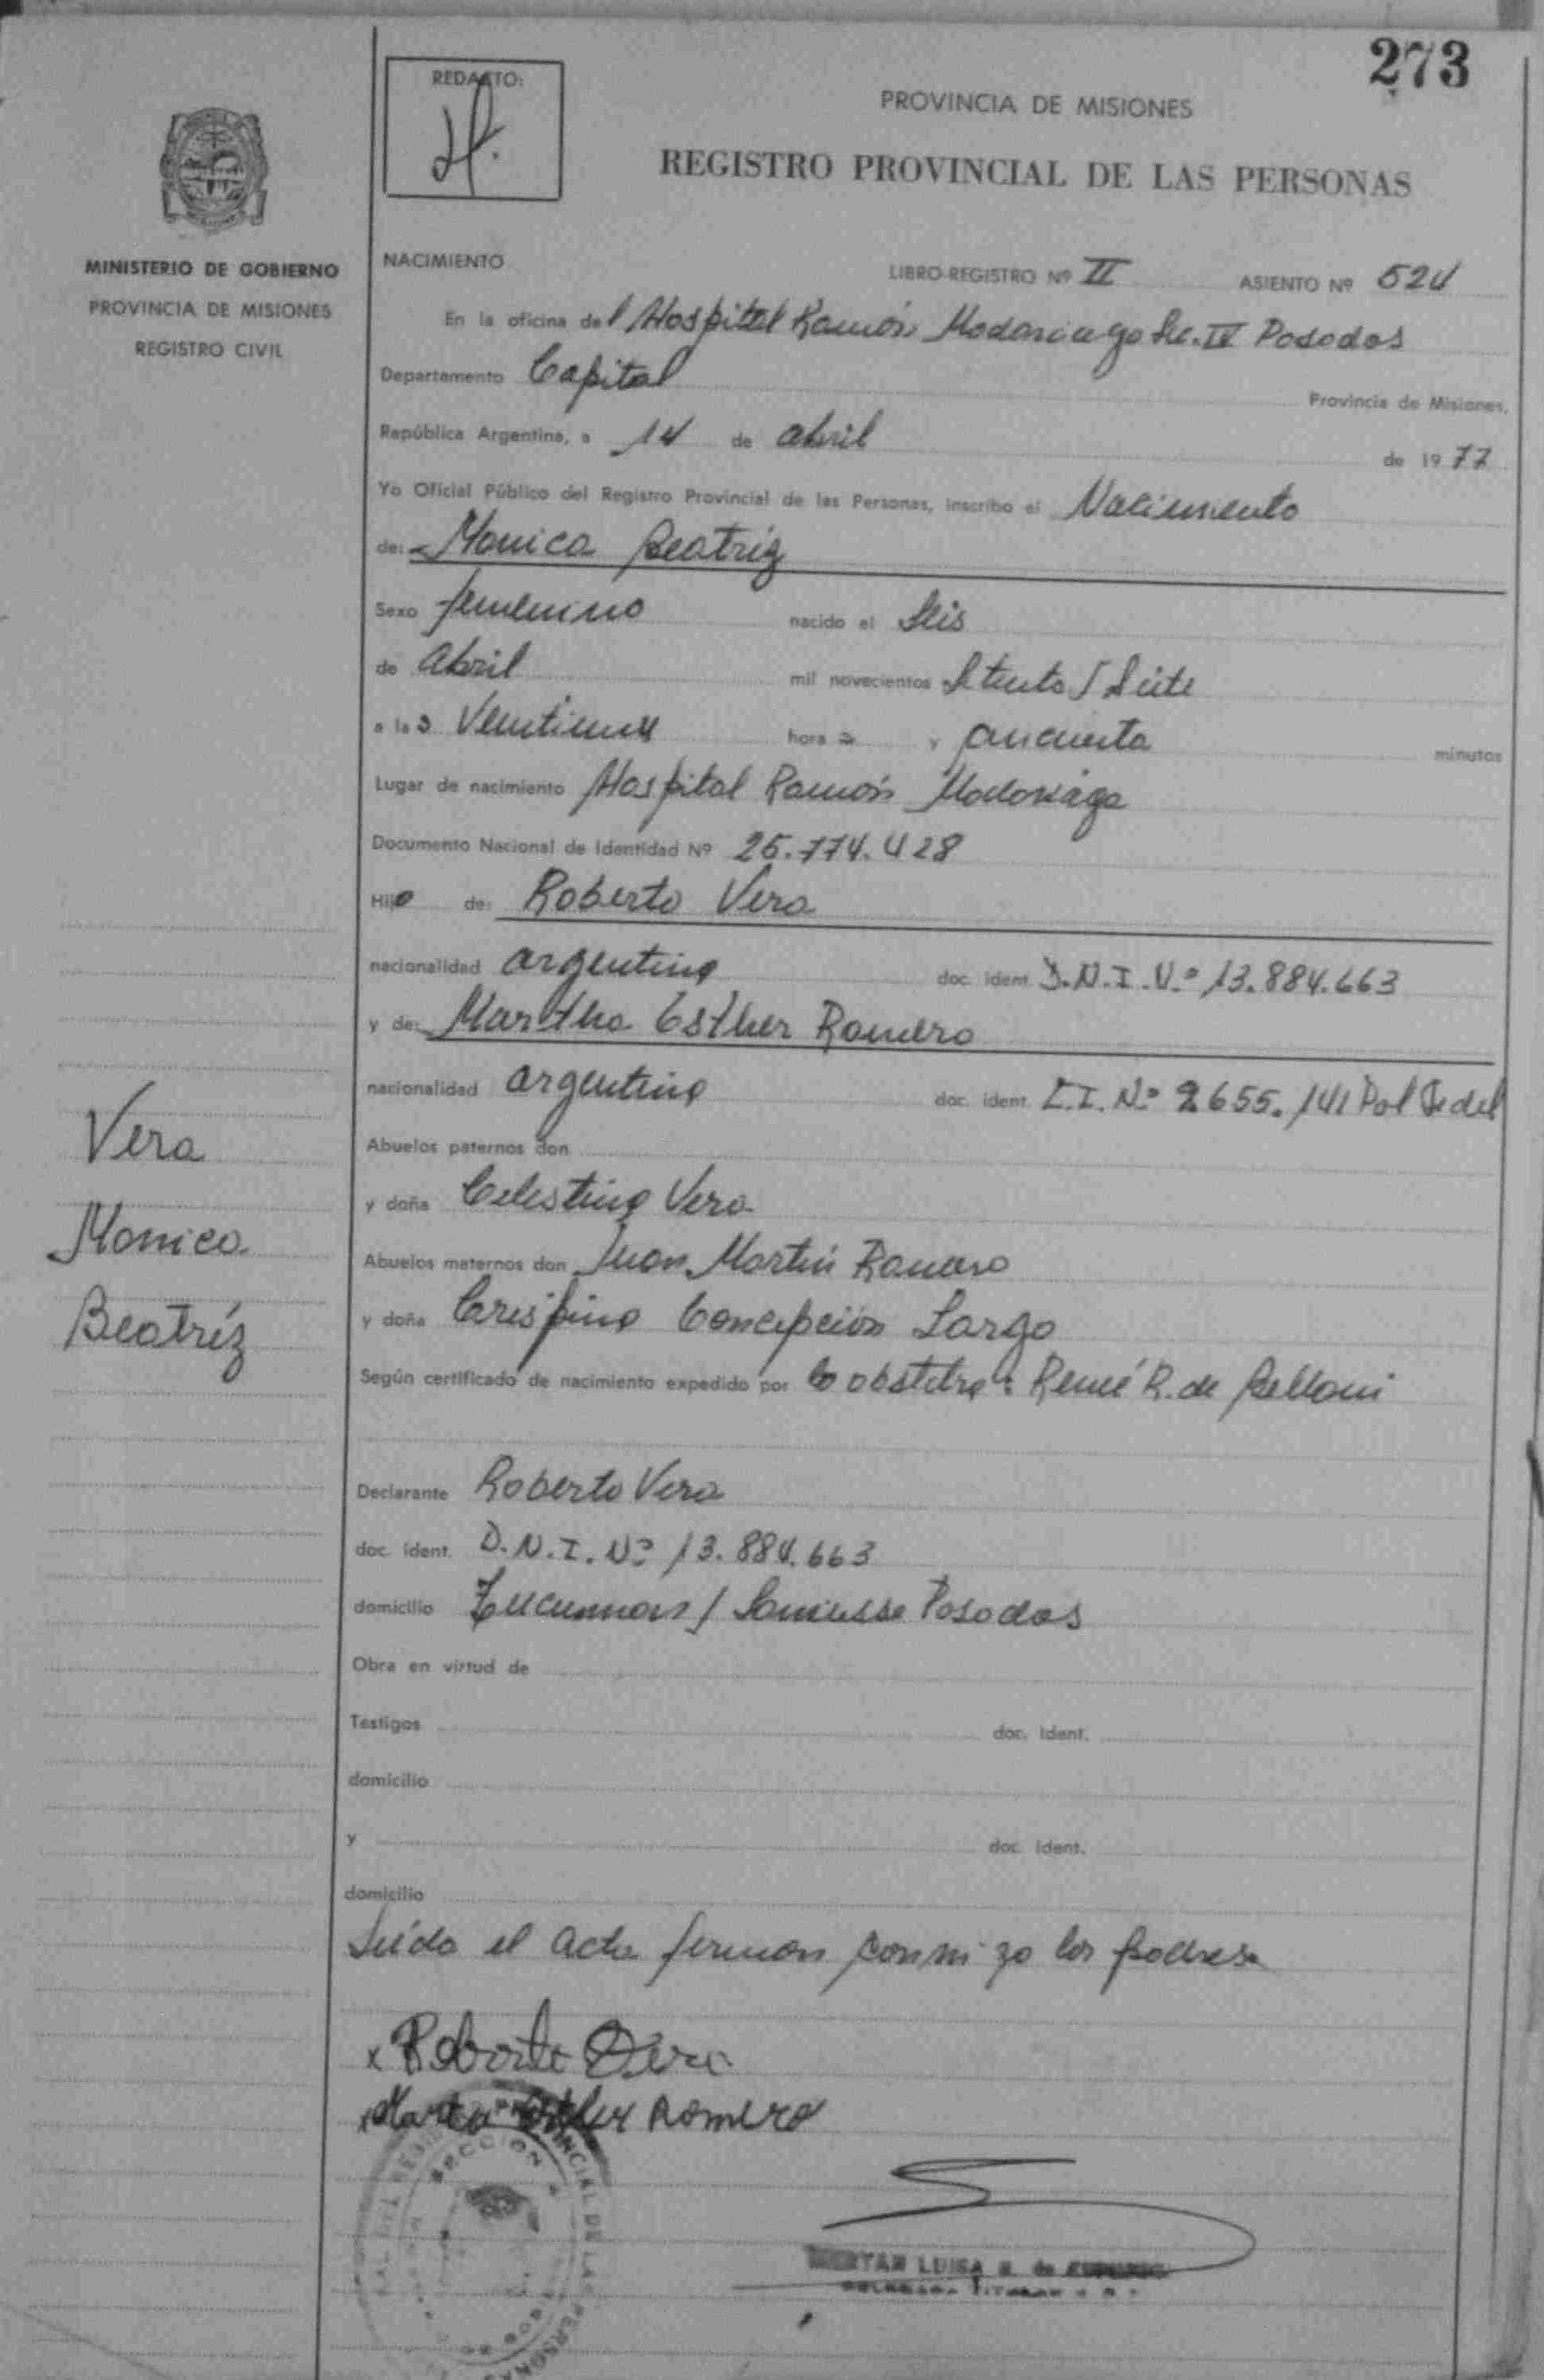 273
REDACTO:
PROVINCIA DE MISIONES
REGISTRO PROVINCIAL DE LAS PERSONAS
MINISTERIO DE GOBIERNO
PROVINCIA DE MISIONES
REGISTRO CIVIL
NACIMIENTO LIBRO-REGISTRO Nº II ASIENTO Nº 524
En la oficina del Hospital Ramón Madariaga Sec. IV Posadas
Departamento Capital Provincia de Misiones,
República Argentina, a 14 de abril de 1977
Yo Oficial Público del Registro Provincial de las Personas, inscribo el Nacimiento
de: Monica Beatriz
Sexo femenino nacido el Seis
de Abril mil novecientos Setenta / Siete
a las Veintiuna horas y cincuenta minutos
Lugar de nacimiento Hospital Ramón Madariaga
Documento Nacional de Identidad Nº 25.774.428
Hija de: Roberto Vera
nacionalidad argentina doc. ident. D.N.I. Nº 13.884.663
y de: Martha Esther Romero
nacionalidad argentina doc. ident. C.I. Nº 2655.141 Pol Fedel
Abuelos paternos don
y doña Celestina Vera
Abuelos maternos don Juan Martin Romero
y doña Crispina Concepción Largo
Según certificado de nacimiento expedido por la obstetra: Reneé R. de Belloni
Vera
Monica
Beatríz
Declarante Roberto Vera
doc. ident. D.N.I. Nº 13.884.663
domicilio Tucuman / Posadas
Obra en virtud de
Testigos doc. ident.
domicilio
y doc. ident.
domicilio
Leída el acta firman conmigo los padres
x Roberto Vera
x Marta Esther Romero
SECCION
PROVINCIAL DE LAS PERSONAS
LUISA